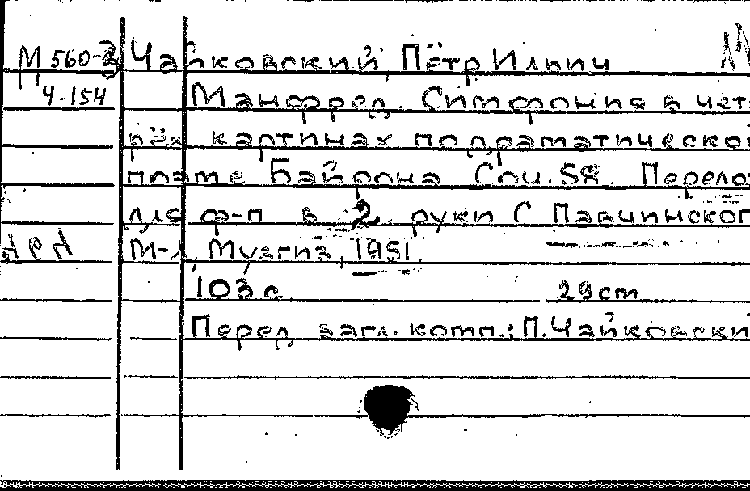 М 560-3 Чайковский, Пётр Ильич
4-154 Манфред. Симфония в чет
рёх картинах по драматической
поэме Байрона Соч. 58. Перелож
для ф-п в 2 руки С Павчинског
М-Л, Музгиз, 1951.
103 с. 29 cm
Перед загл. комп.: П. Чайковский